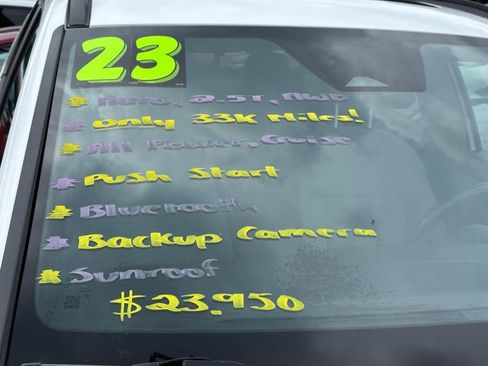 23
* Auto, 2.5T, AWD
* Only 33K Miles!
* All Power, Cruise
* Push Start
* Bluetooth
* Backup Camera
* Sunroof
$23,950